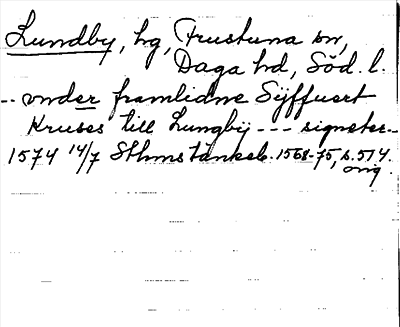 Lundby, hg, Frustuna sn,
Daga hd, Söd. l.
-- vnder framlidne Syffuert
Kruses till Lungbÿ --- signeter--
1574 14/7 Sthms tänkeb. 1568-75, s. 514.
orig.